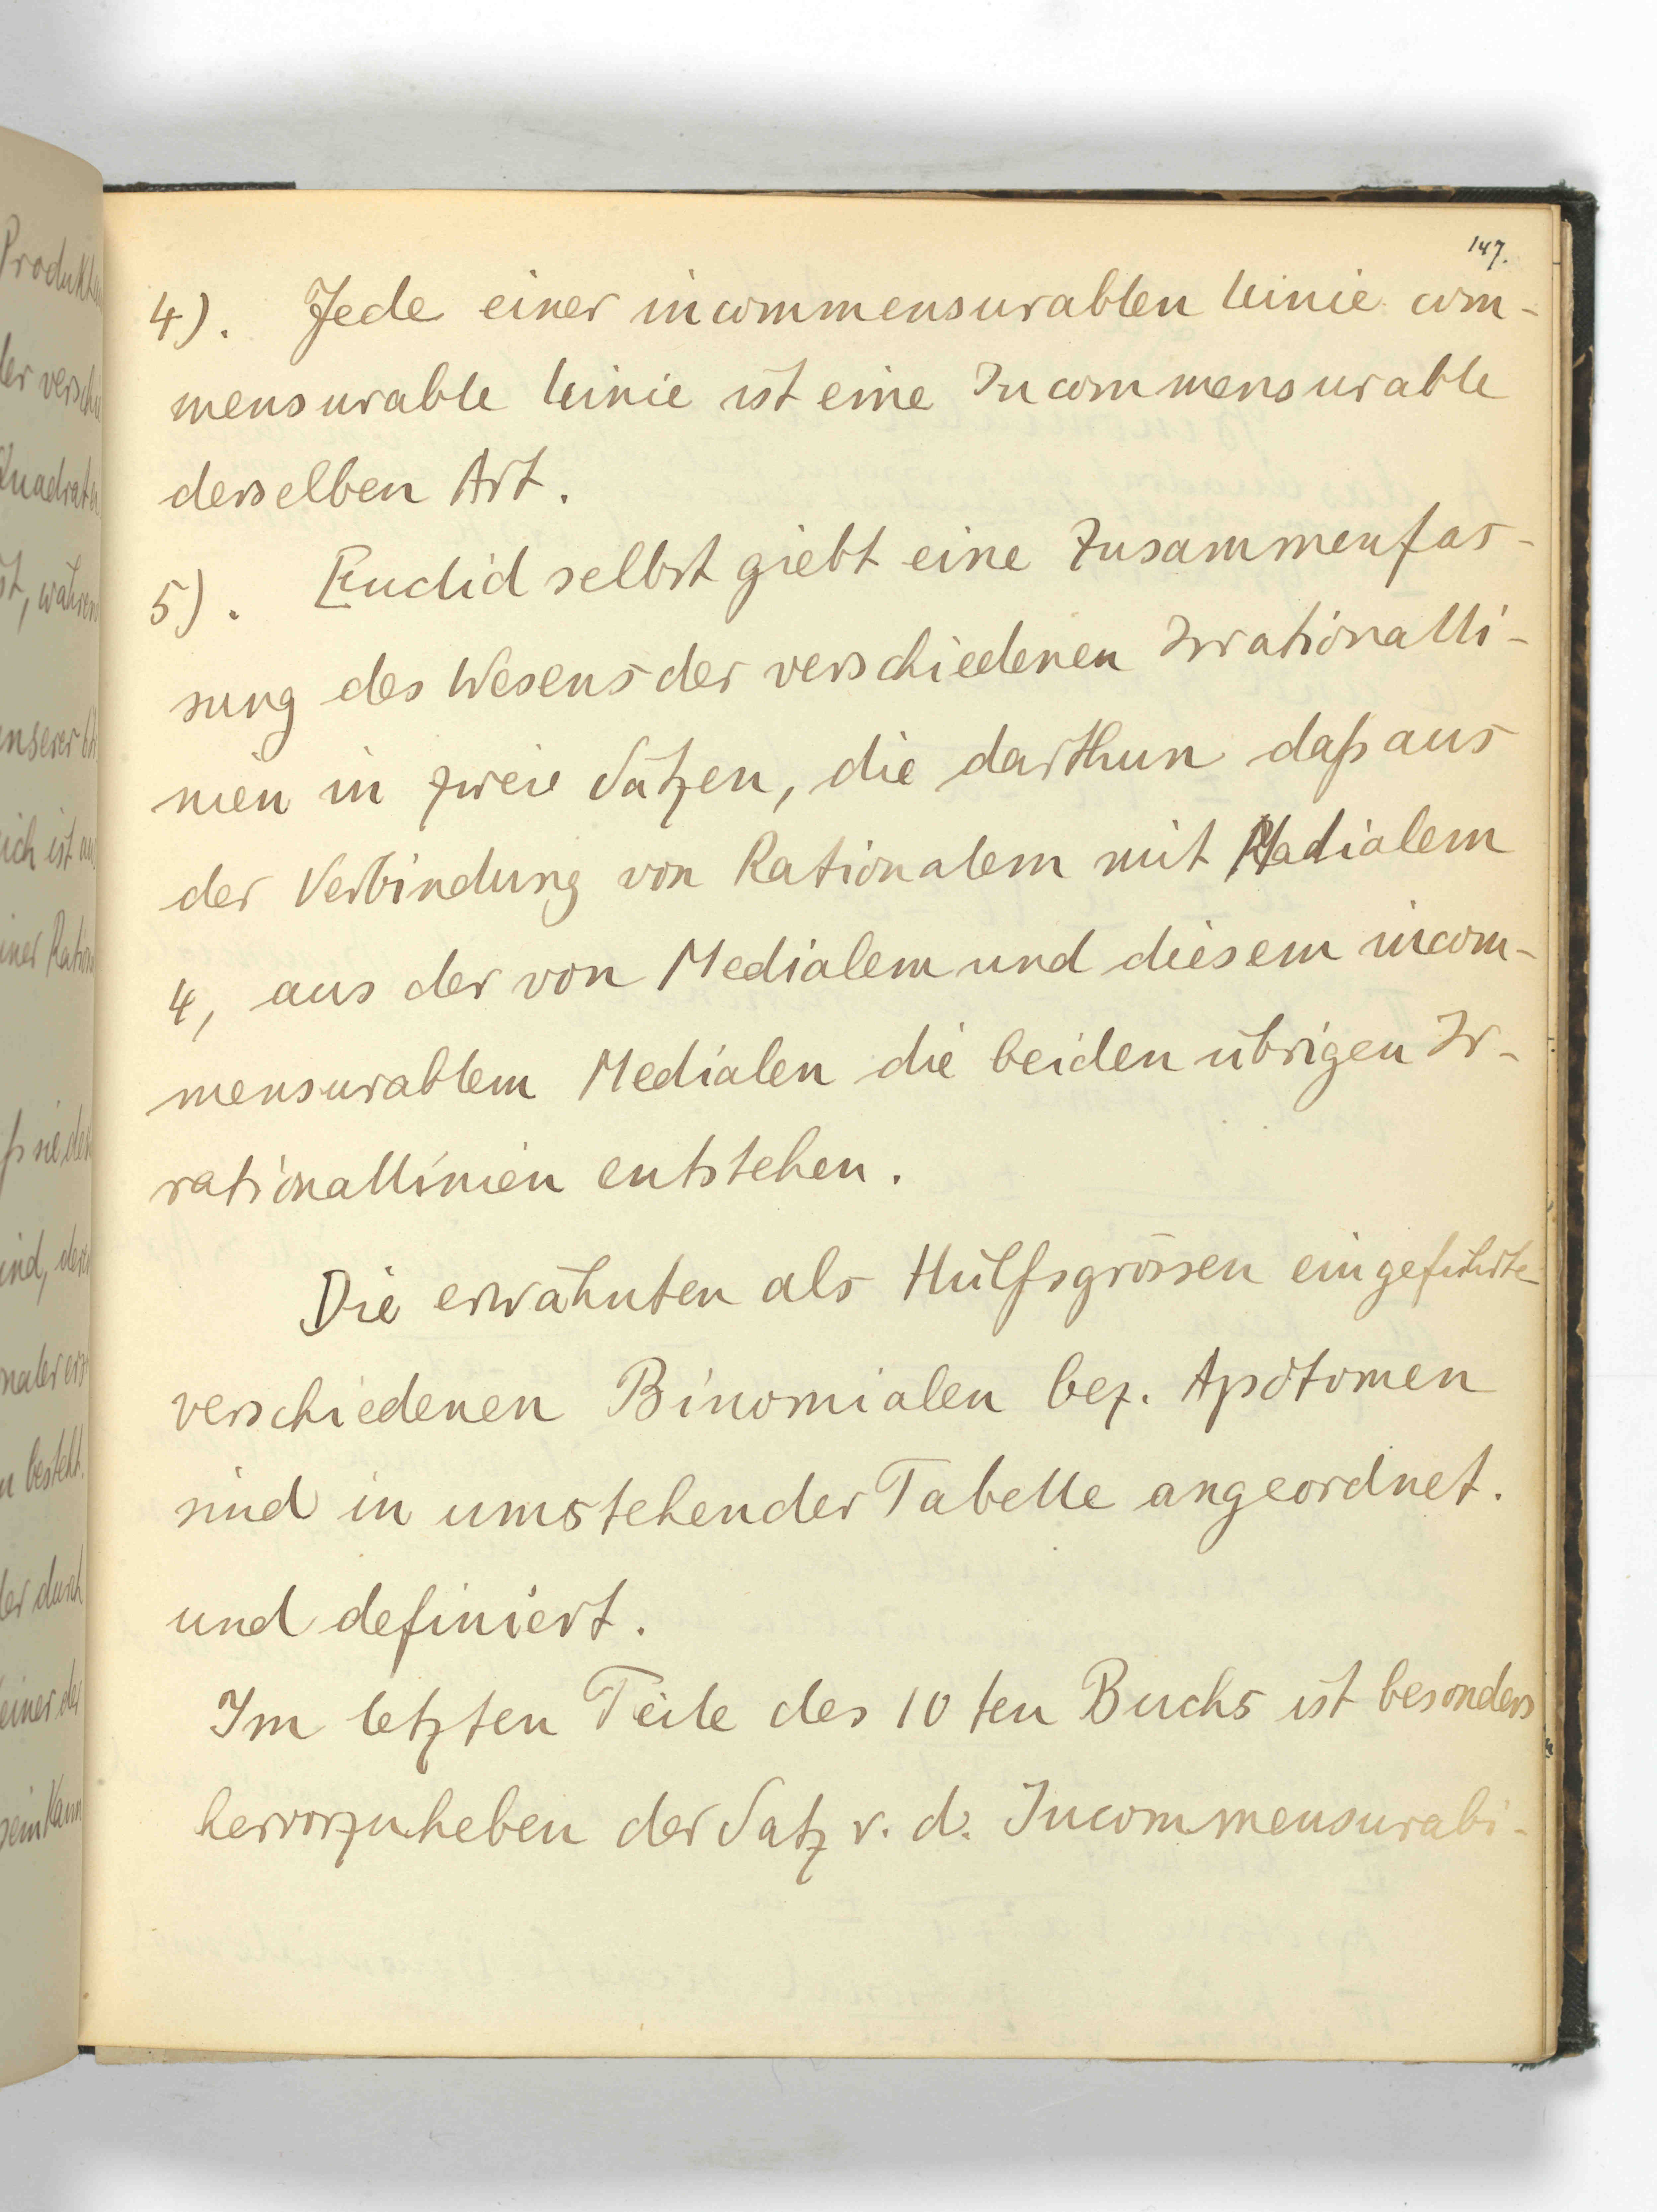 147.
4). Jede einer incommensurablen Linie com-
mensurable Linie ist eine Incommensurable
derselben Art.
5). Euclid selbst giebt eine Zusammenfas-
sung des Wesens der verschiedenen Irrationalli-
nien in zwei Sätzen, die darthun daß aus
der Verbindung von Rationalem mit Medialem
4, aus der von Medialem und diesem incom-
mensurablem Medialen die beiden übrigen Ir-
rationallinien entstehen.
Die erwähnten als Hülfsgrössen eingeführte
verschiedenen Binomialen bez. Apotomen
sind in umstehender Tabelle angeordnet.
und definiert.
Im letzten Teile des 10 ten Buchs ist besonders
hervorzuheben der Satz v. d. Incommensurabi-